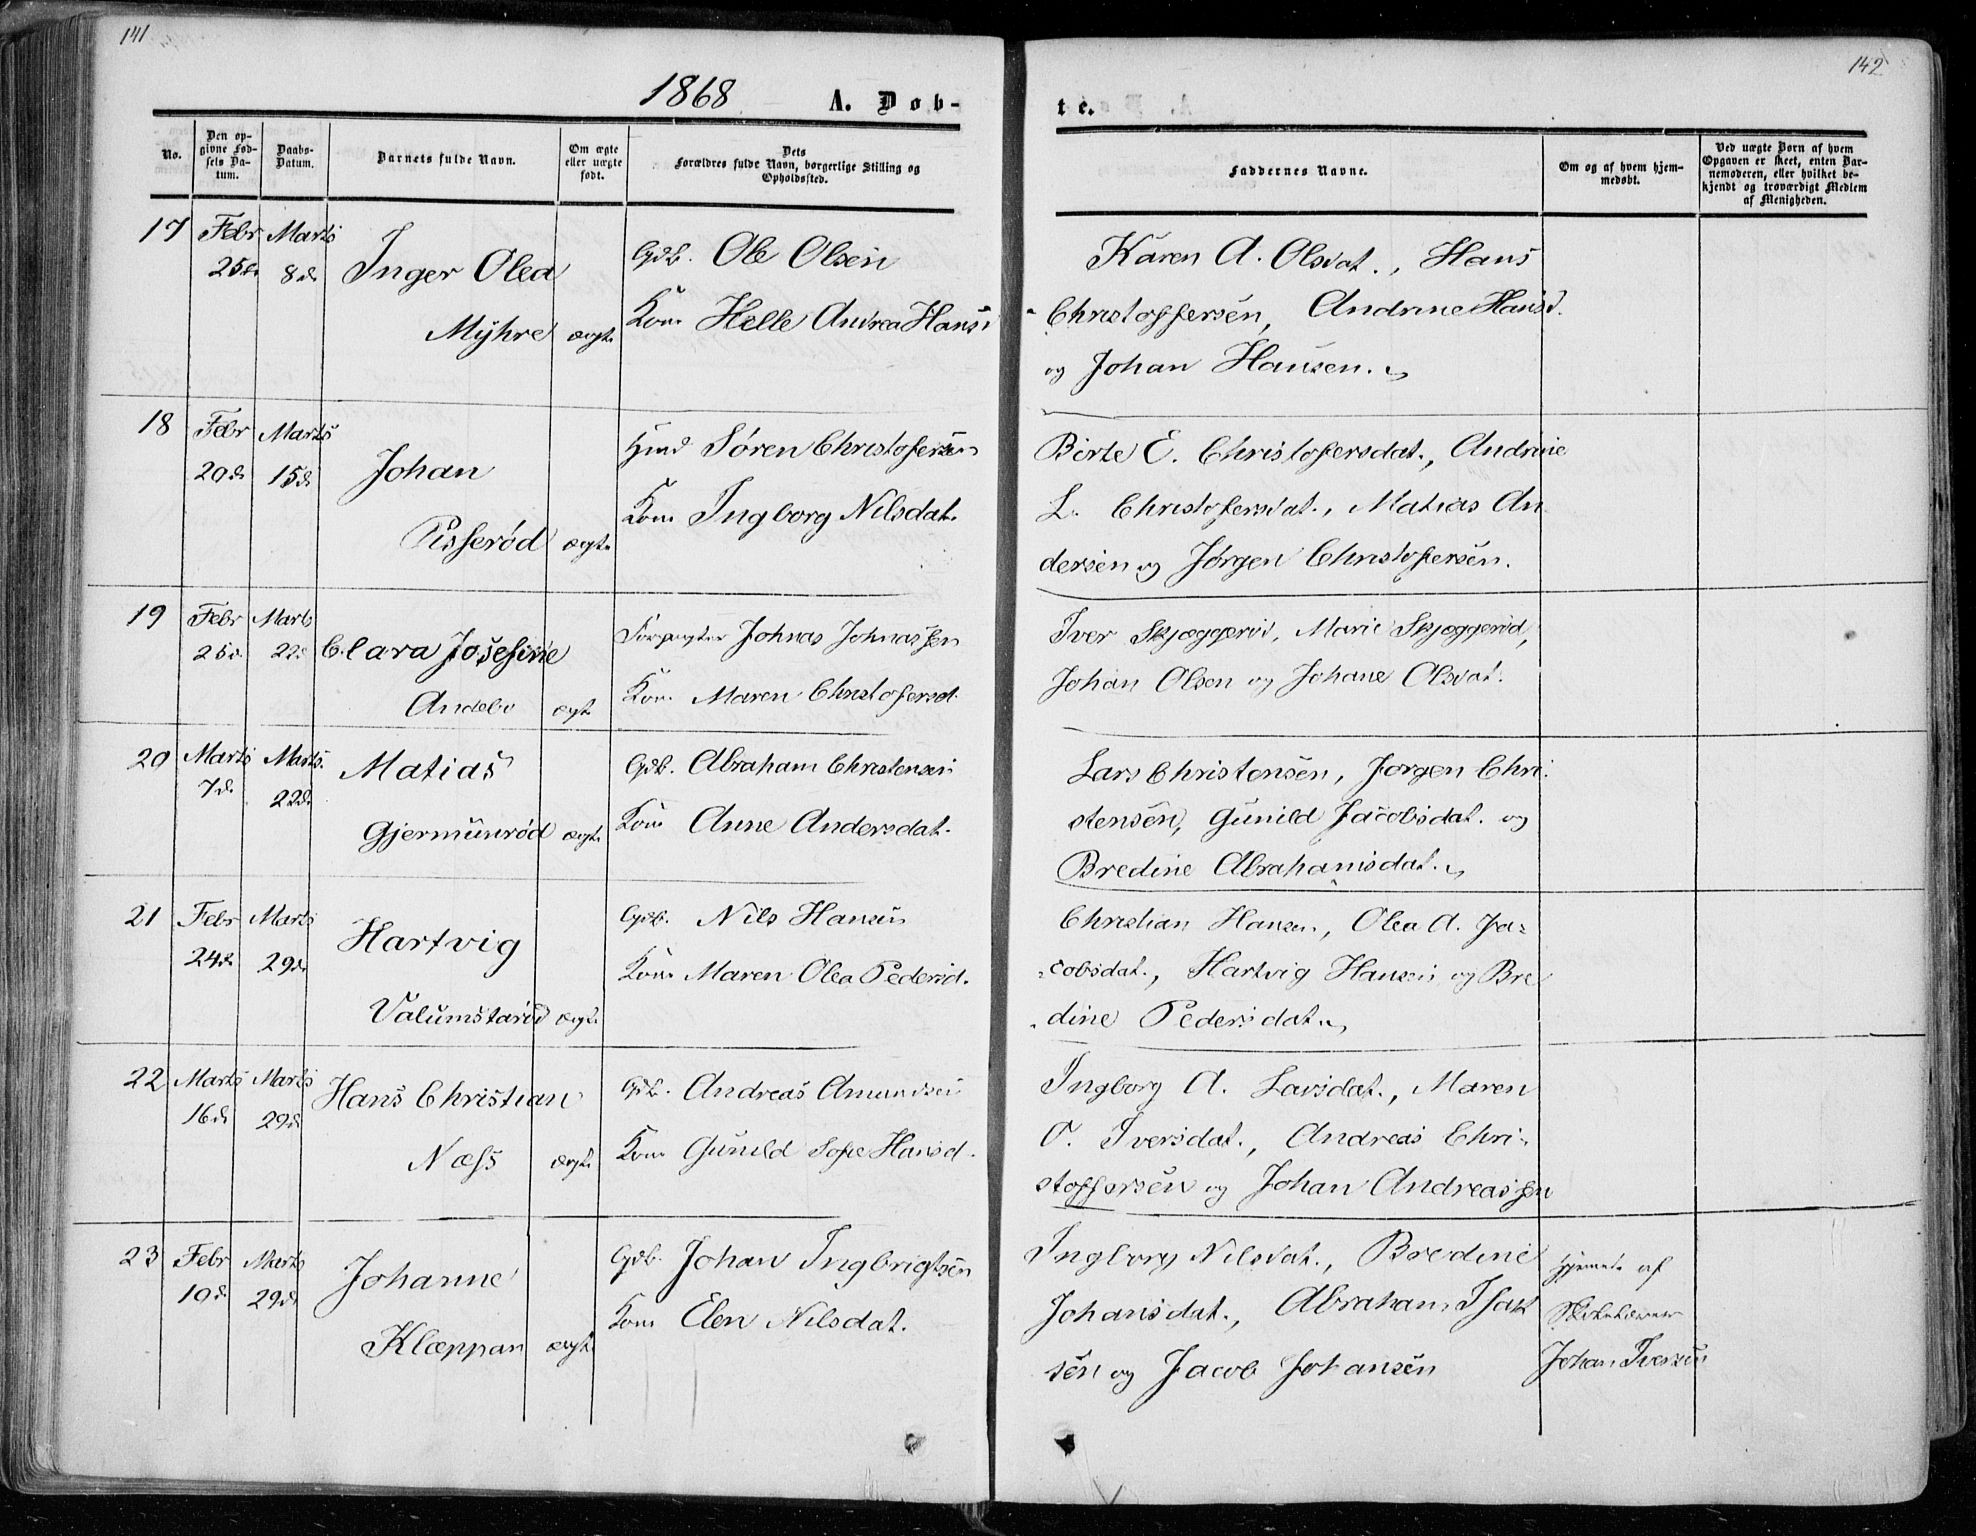 141
142
1868
A. Døb-
te.
No.
Den op-
givne Fød-
sels Da-
tum.
Daabs-
Datum.
Barnets fulde Navn.
Om ægte
eller uægte
født.
Dets
Forældres fulde Navn, borgerlige Stilling og
Opholdssted.
Faddernes Navne.
Om og af hvem hjem-
medøbt.
Ved uægte Børn af hvem
Opgaven er skeet, enten Bar-
nemoderen, eller hvilket be-
kjendt og troværdigt Medlem
af Menigheden.
17 Febr Marts
25d. 8d. Inger Olea
Myhre ægte
Gdb. Ole Olsen
Kone Helle Andrea Hansd
Karen A. Olsdat., Hans
Christoffersen, Andrine Hansd.
og Johan Hansen.
18 Febr Marts
20d. 15d. Johan
Pisserød ægte
Hmd Søren Christofersen
Kone Ingborg Nilsdat.
Birte E. Christofersdat., Andrine
L. Christofersdat., Matias An
dersen og Jørgen Christofersen.
19 Febr Marts
26d. 22d. Clara Josefine
Andebo ægte
Forpagter Johnas Johnassen
Kone Maren Christofersd.
Iver Skjæggerød, Marie Skjæggerød,
Johan Olsen og Johane Olsdat.
20 Marts Marts
7d. 22d. Matias
Gjermunrød ægte
Gdb. Abraham Christensen
Kone Anne Andersdat.
Lars Christensen, Jørgen Chri-
stensen, Gunild Jacobsdat. og
Bredine Abrahamsdat.
21 Febr Marts
24d. 29d. Hartvig
Valumstarød ægte
Gdb. Nils Hansen
Kone Maren Olea Pedersd.
Christian Hansen, Olea A. Ja-
cobsdat., Hartvig Hansen og Bre
dine Pedersdat.
22 Marts Marts
16d. 29d. Hans Christian
Næss ægte
Gdb. Andreas Amundsen
Kone Gunild Sofie Hansd.
Ingborg A. Larsdat., Maren
O. Iversdat., Andreas Chri-
stoffersen og Johan Andreassen
23 Febr Marts
19d. 29d. Johanne
Klæppan ægte
Gdb. Johan Ingbrigtsen
Kone Elen Nilsdat.
Ingborg Nilsdat., Bredine
Johansdat., Abraham Isak
sen og Jacob Johansen
af
Johan Iversen